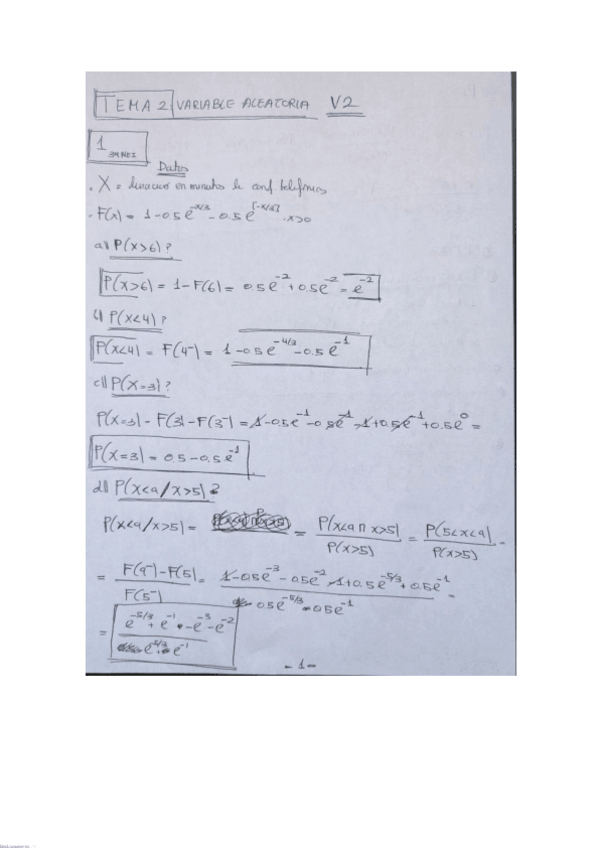 TEMA 2 VARIABLE ALEATORIA V2
1
Datos
· X = duracion en minutos de conf telefonicas
· F(x) = 1-0.5e^{-x/3} - 0.5e^{[-x/3]} · x>0
a)| P(x>6)?
P(x>6) = 1-F(6) = 0.5e^{-2}+0.5e^{-2} = e^{-2}
P(x<4)?
P(x<4) = F(4⁻) = 1-0.5e^{-4/3}-0.5e^{-1}
c)| P(X=3)?
P(x=3) = F(3)-F(3⁻) = 1-0.5e^{-1}-0.5e^{-1}-1+0.5e^{-1}+0.5e^{0} =
P(x=3) = 0.5-0.5e^{-1}
d)| P(x<9/x>5)?
P(x<9/x>5) = = P(x<9 ∩ x>5)/P(x>5) = P(5<x<9)/P(x>5) =
= F(9⁻)-F(5)/F(5⁻) = 1-0.5e^{-3}-0.5e^{-2}-1+0.5e^{-5/3}+0.5e^{-1}/0.5e^{-5/3} 0.5e^{-1} =
= e^{-5/3}+e^{-1}-e^{-3}-e^{-2}/e^{-5/3} e^{-1}
-1-